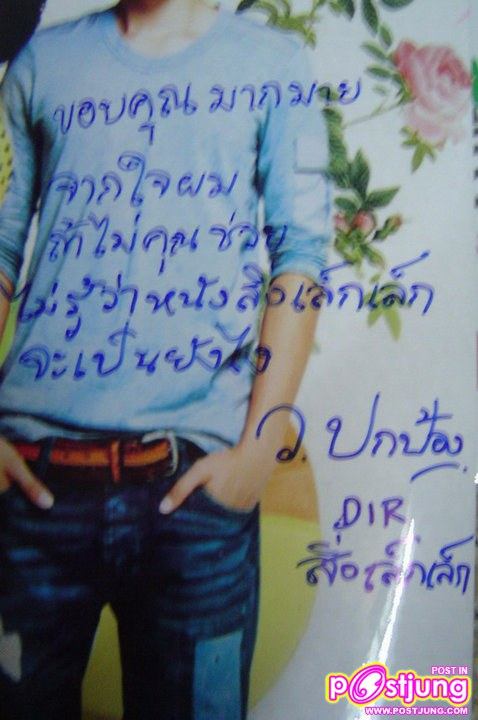 ขอบคุณ มากมาย
จากใจผม
ถ้าไม่คุณช่วย
ไม่รู้ว่าหนังสิ่งเล็กเล็ก
จะเป็นยังไง
ว. ปกป้อง
DIR
สิ่งเล็กเล็ก
POST IN
postjung
WWW.POSTJUNG.COM